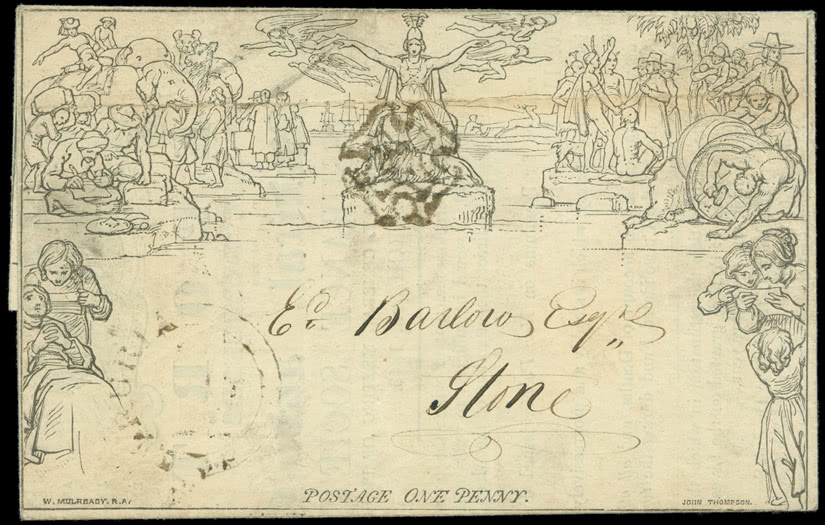 Ed. Barlow Esqre
Stone
POSTAGE ONE PENNY.
W. MULREADY. R.A.
JOHN THOMPSON.